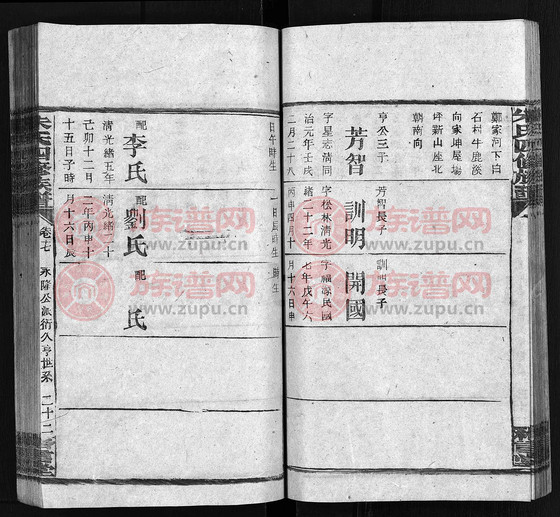 朱氏四修族譜
鄭家河下白
石村牛鹿淡
向家坤屋場
坪新山座北
朝南向
亨公三子
芳智
字星志清同
治元年壬戌
二月二十八
日午時生
芳智長子
訓明
字松林清光
緒二十二年
丙申四月十
一日辰時生
訓明長子
開國
字福緣民國
七年戊午六
月十六日申
時生
配
李氏
清光緒五年
己卯十二月
十五日子時
配
劉氏
清光緒二十
二年丙申十
月十六日辰
配
氏
朱氏四修族譜
卷七
永隆公派衍久亨世系
二十二
族谱网
www.zupu.cn
族谱网
www.zupu.cn
族谱网
www.zupu.cn
族谱网
www.zupu.cn